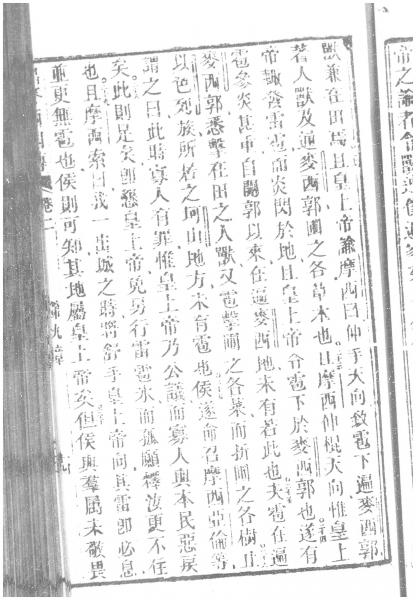 獸兼在田焉且皇上帝諭摩西曰伸手天向致雹下遍麥西郭
着人獸及遍麥西郭圃之各草木也且摩西伸棍天向惟皇上
帝輙發雷雹而炎閃於地且皇上帝令雹下於麥西郭也遂有
雹參炎甚重自開郭以來在遍麥西地未有若此也夫雹在遍
麥西郭悉擊在田之人獸又雹擊圃之各菜而折圃之各樹止
以色列族所居之坷山地方未有雹也侯遂命召摩西亞倫等
謂之曰此時寡人有罪惟皇上帝乃公義而寡人與本民惡戾
矣此則足矣卽懇皇上帝免另行雷雹而孤願釋汝更不在
也且摩西索曰我一出城之時將舒手皇上帝向其雷卽必息
並更無雹也侯則可知其地屬皇上帝矣但侯與羣屬未敬畏
卷二 九章